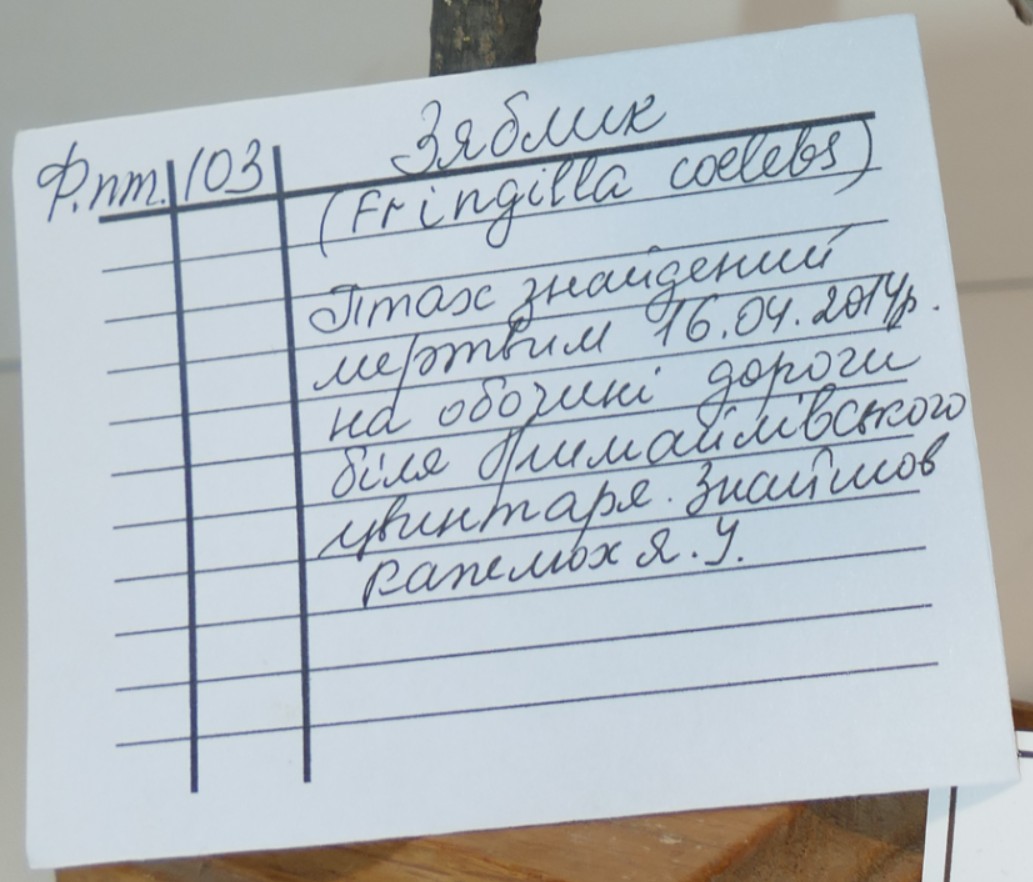 Ф.пт. 103 Зяблик
(Fringilla coelebs)
Птах знайдений
мертвим 16.04.2014р.
на обочині дороги
біля
цвинтаря. Знайшов
Капелюх Я. У.